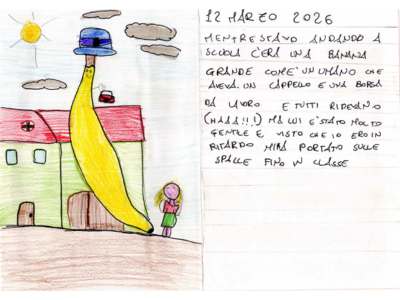 12 MARZO 2026
MENTRE STAVO ANDANDO A
SCUOLA C'ERA UNA BANANA
GRANDE COME UN UMANO CHE
AVEVA UN CAPPELLO E UNA BORSA
DA LAVORO E TUTTI RIDEVANO
(HAAA!!!) MA LUI È STATO MOLTO
GENTILE E VISTO CHE IO ERO IN
RITARDO MI HA PORTATO SULLE
SPALLE FINO IN CLASSE